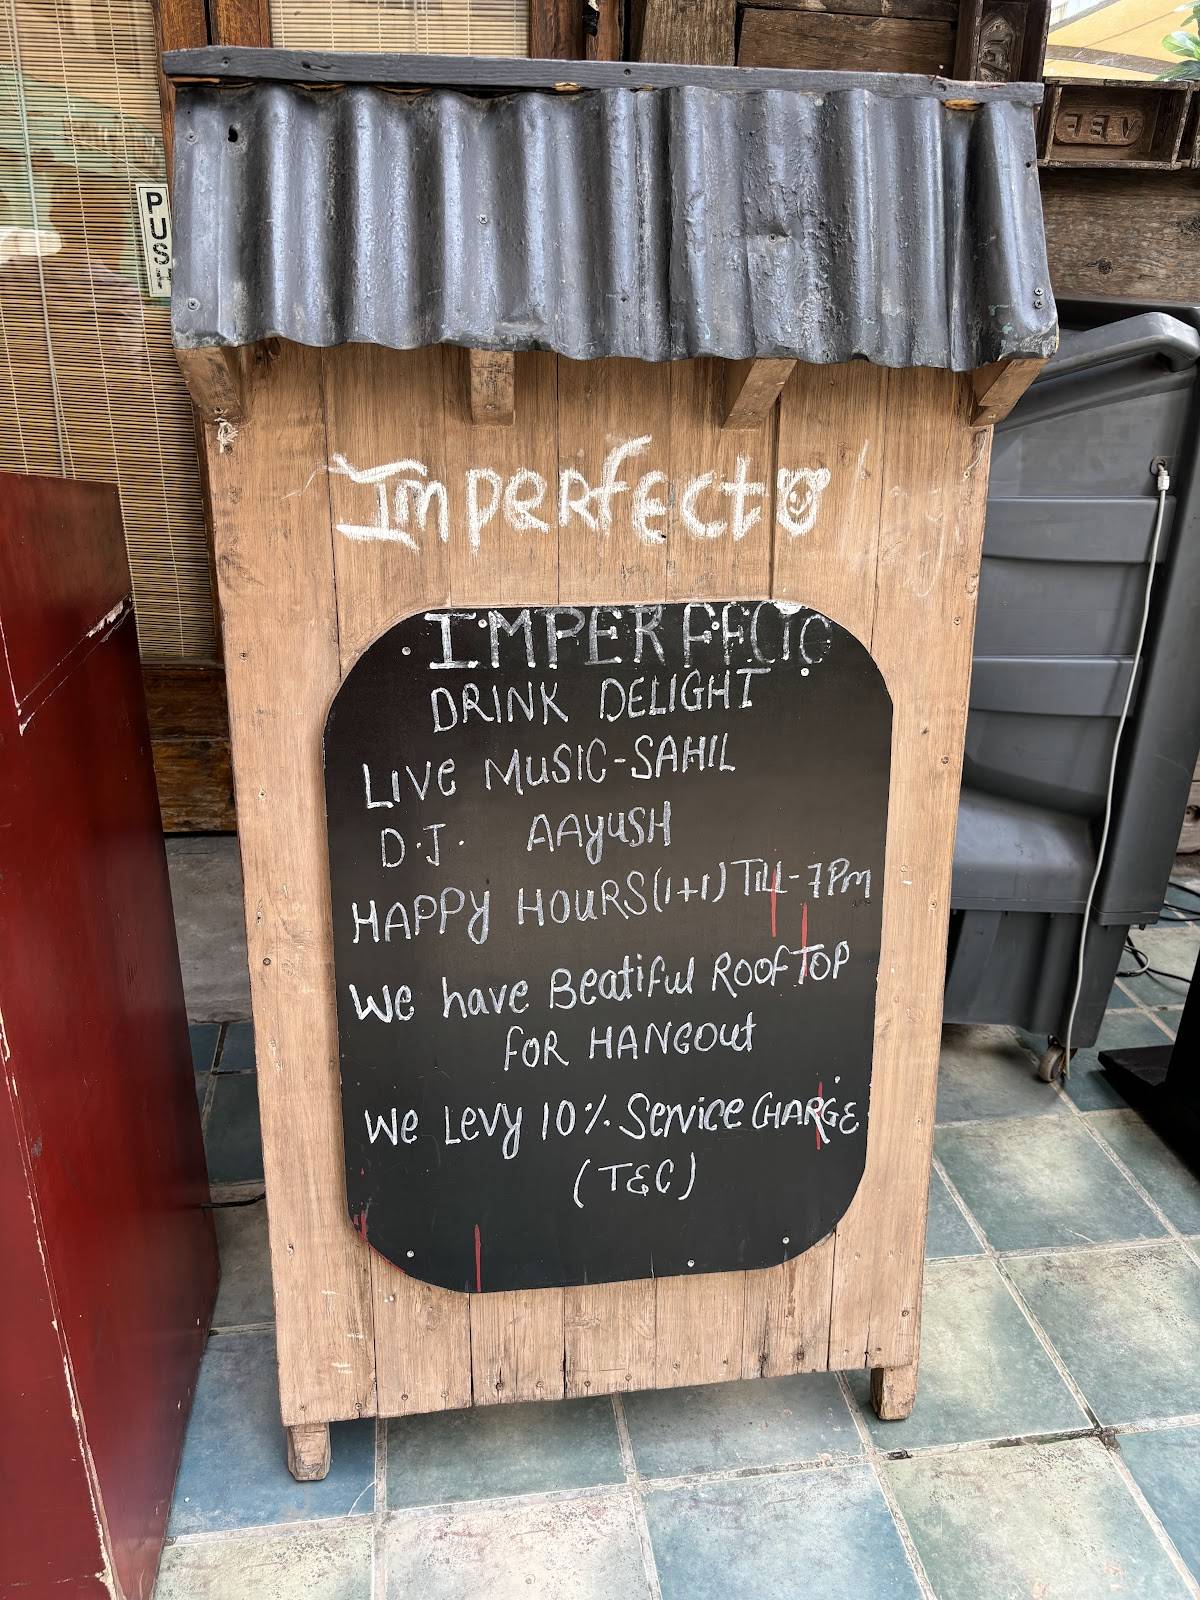 PUSH
FEV
Imperfecto
IMPERFECTO
DRINK DELIGHT
LIVE MUSIC-SAHIL
D.J. AAYUSH
HAPPY HOURS(1+1) TILL-7PM
We have Beatiful ROOFTOP
FOR HANGOUT
We Levy 10% Service CHARGE
(T&C)